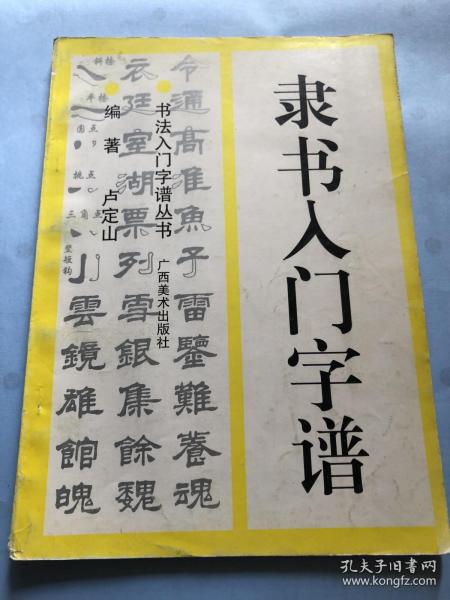 隶书入门字谱
书法入门字谱丛书
广西美术出版社
编著 卢定山
令通高淮魚子雷鑒難養魂
衣廷室湖票列雪銀集餘魏
斜捺
平捺
圆点
挑点
三角点
竖短钩
小雲鏡雄館魄
孔夫子旧书网
www.kongfz.com